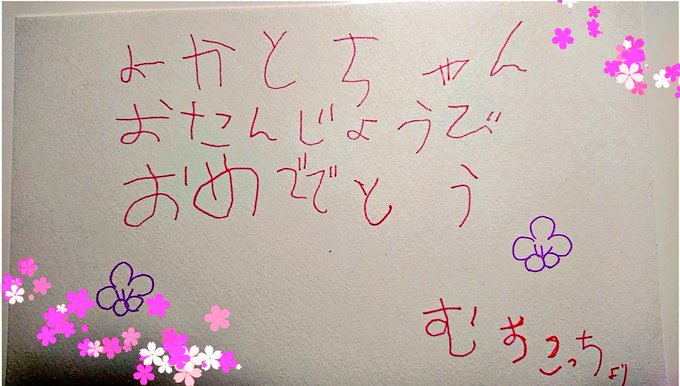 よかとちゃん
おたんじょうび
おめででとう
むすこっちより